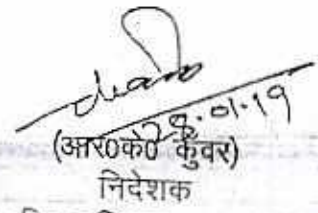 28.01.19
(आर0के0 कुंवर)
निदेशक